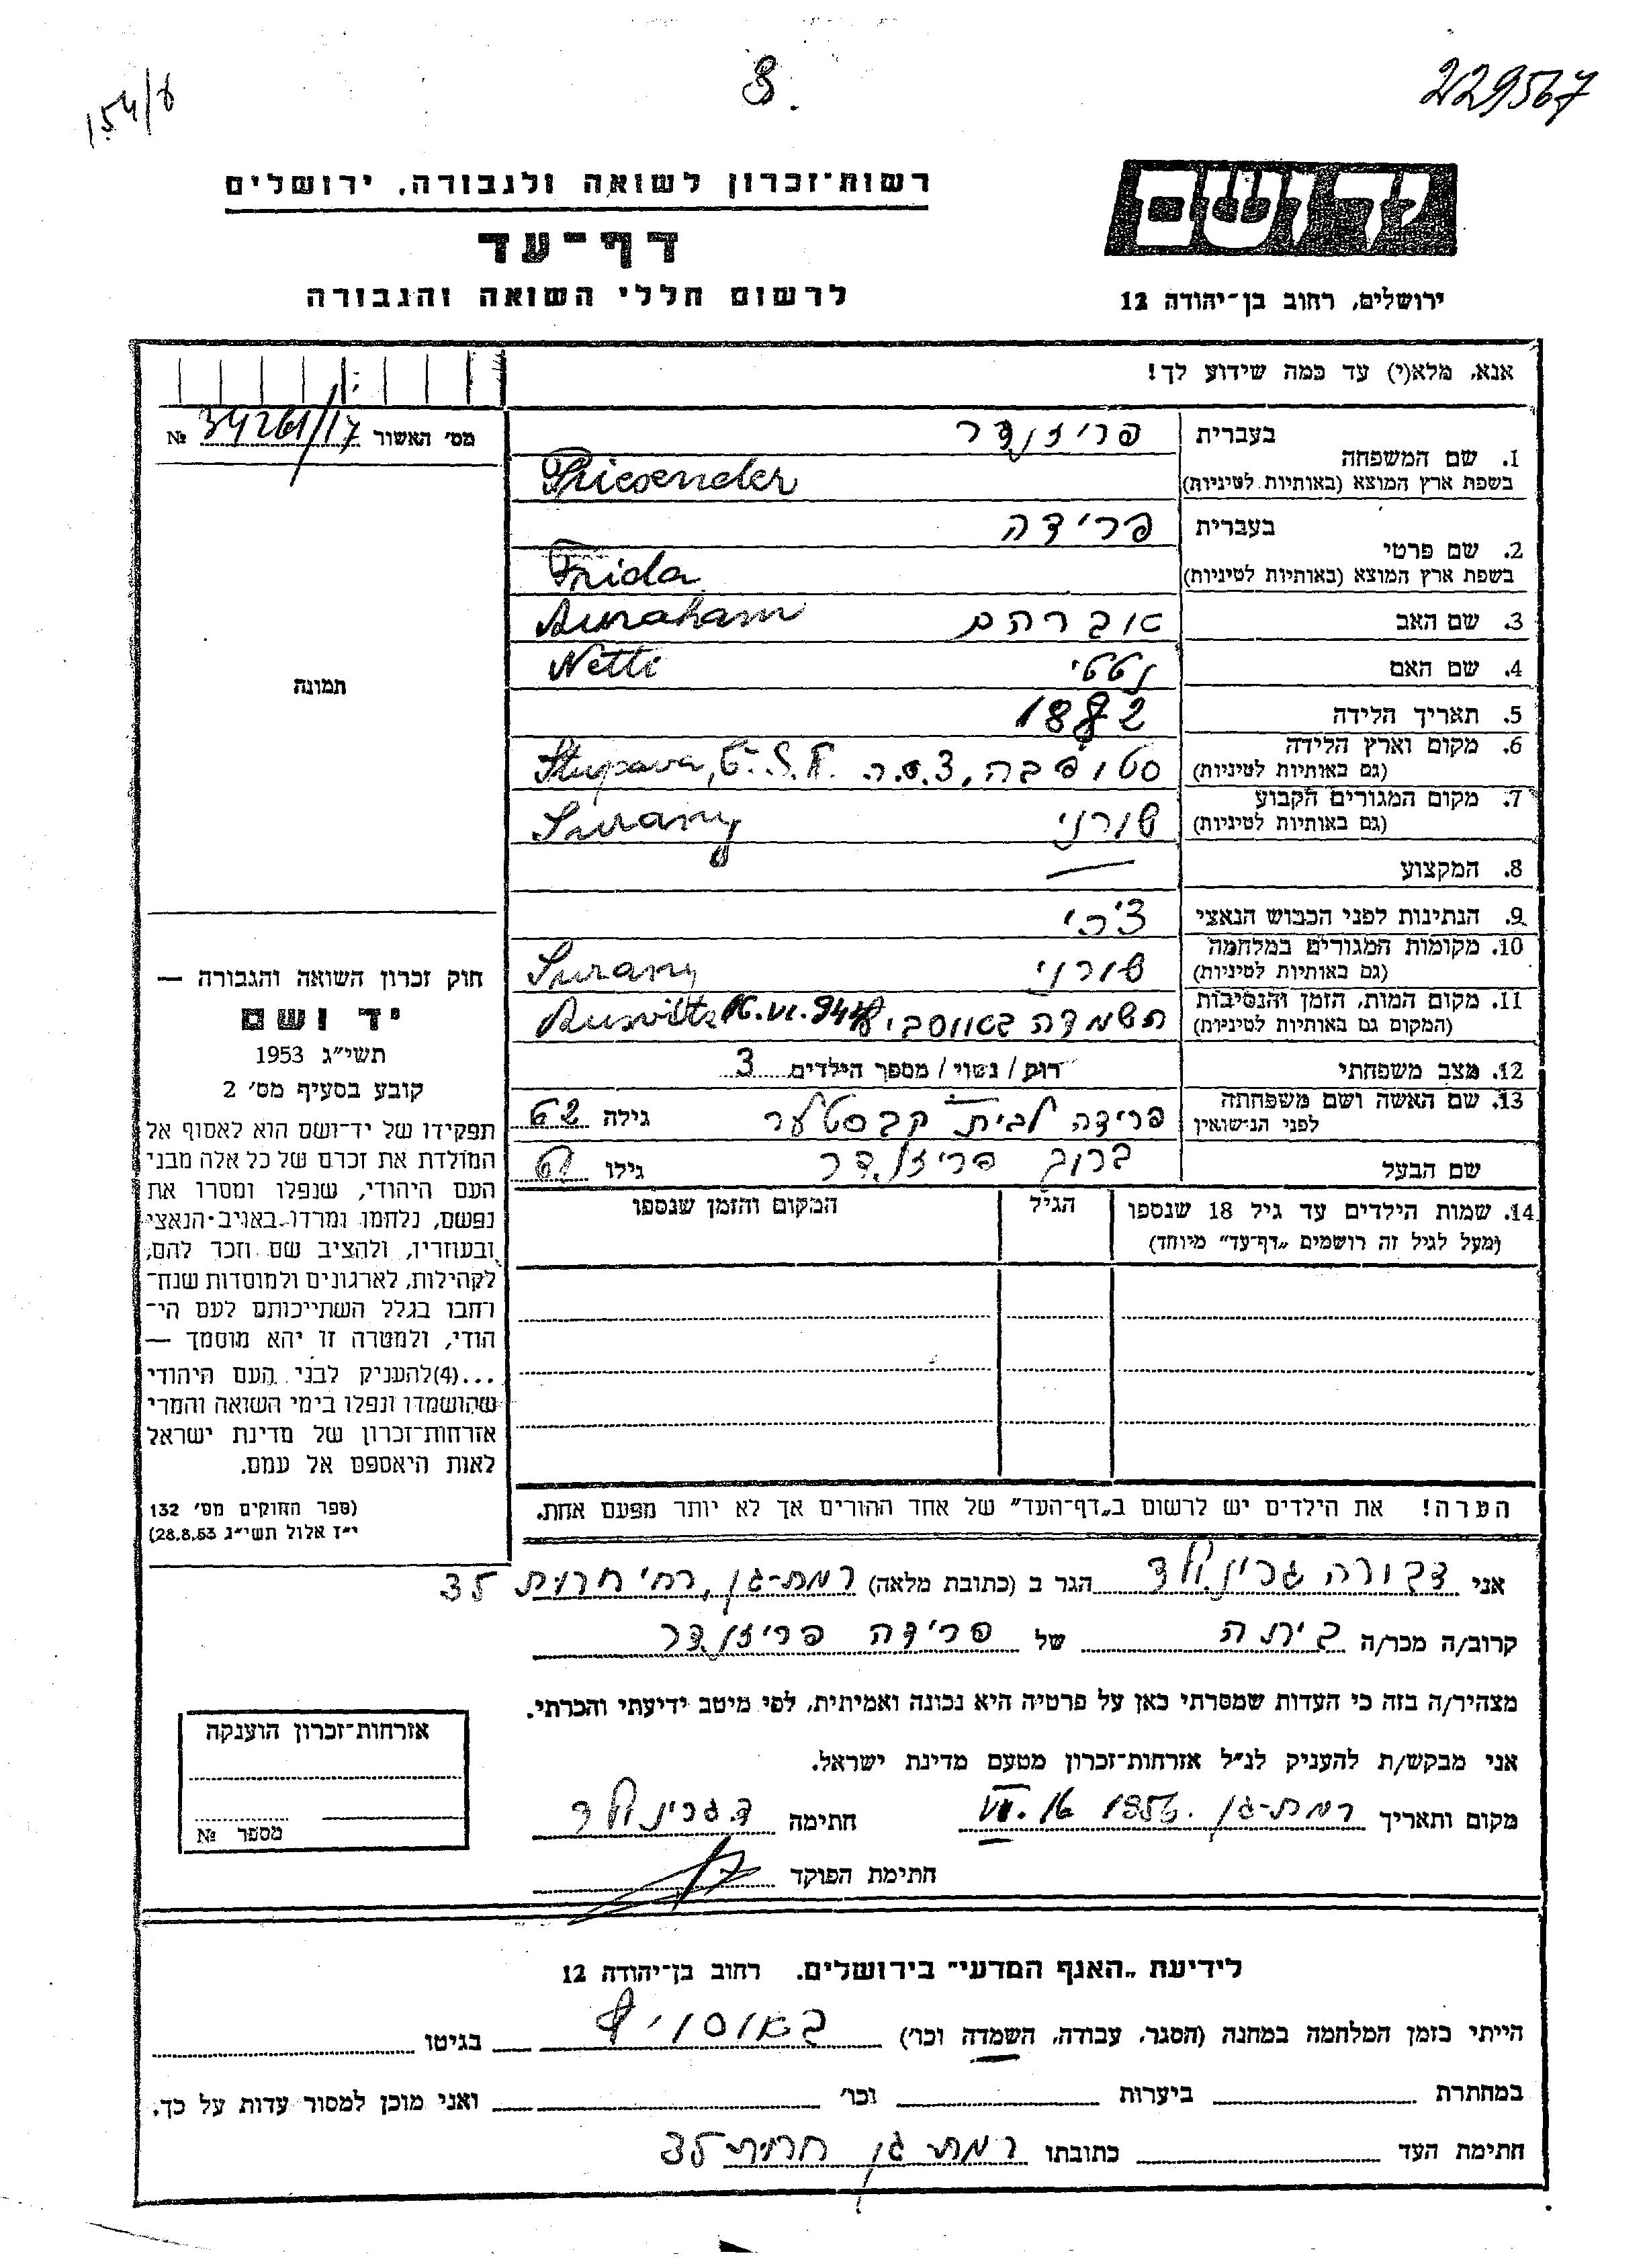 154/8
8.
229567
רשות־זכרון לשואה ולגבורה, ירושלים
דף־עד
לרשום חללי השואה והגבורה
יד ושם
ירושלים, רחוב בן־יהודה 12
אנא, מלא(י) עד כמה שידוע לך!
מס׳ האשור 34261/17 №
תמונה
1. שם המשפחה
בעברית פריזנדר
בשפת ארץ המוצא (באותיות לטיניות) Friesender
2. שם פרטי
בעברית פרידה
בשפת ארץ המוצא (באותיות לטיניות) Frida
3. שם האב אברהם Avraham
4. שם האם נטטי Netti
5. תאריך הלידה 1882
6. מקום וארץ הלידה
(גם באותיות לטיניות) סטופבה, צ.ס.ר. Stupava, Č.S.R.
7. מקום המגורים הקבוע
(גם באותיות לטיניות) שורני Surany
8. המקצוע —
9. הנתינות לפני הכבוש הנאצי צ׳כי
10. מקומות המגורים במלחמה
(גם באותיות לטיניות) שורני Surany
11. מקום המות, הזמן והנסיבות
(המקום גם באותיות לטיניות) Ausvitz 16.VI.944
12. מצב משפחתי רוק / נשוי / מספר הילדים 3
13. שם האשה ושם משפחתה
לפני הנישואין פרידה לבית גילה 62
שם הבעל ברוך פריזנדר גילו
14. שמות הילדים עד גיל 18 שנספו
(מעל לגיל זה רושמים „דף־עד” מיוחד)
הגיל
המקום והזמן שנספו
הערה! את הילדים יש לרשום ב„דף־העד” של אחד ההורים אך לא יותר מפעם אחת.
חוק זכרון השואה והגבורה —
יד ושם
תשי״ג 1953
קובע בסעיף מס׳ 2
תפקידו של יד־ושם הוא לאסוף אל
המולדת את זכרם של כל אלה מבני
העם היהודי, שנפלו ומסרו את
נפשם, נלחמו ומרדו באויב הנאצי
ובעוזריו, ולהציב שם וזכר להם,
לקהילות, לארגונים ולמוסדות שנח־
רחבו בגלל השתייכותם לעם הי־
הודי, ולמטרה זו יהא מוסמך —
...(4)להעניק לבני העם היהודי
שהושמדו ונפלו בימי השואה והמרי
אזרחות־זכרון של מדינת ישראל
לאות היאספם אל עמם.
(ספר החוקים מס׳ 132
י״ז אלול תשי״ג 28.8.53)
אני דבורה גרינולד הגר ב (כתובת מלאה) רמת-גן, רח׳ חרות 35
קרוב/ה מכר/ה ביתה של פרידה פריזנדר
מצהיר/ה בזה כי העדות שמסרתי כאן על פרטיה היא נכונה ואמיתית, לפי מיטב ידיעתי והכרתי.
אני מבקש/ת להעניק לנ״ל אזרחות־זכרון מטעם מדינת ישראל.
מקום ותאריך רמת-גן. 1956 חתימה ד. גרינולד
חתימת הפוקד
אזרחות־זכרון הוענקה
מספר №
לידיעת „האגף המדעי” בירושלים. רחוב בן־יהודה 12
הייתי בזמן המלחמה במחנה (הסגר, עבודה, השמדה וכו׳) בגיטו
במחתרת ביערות וכו׳ ואני מוכן למסור עדות על כך.
חתימת העד כתובתו רמת גן חרות 35